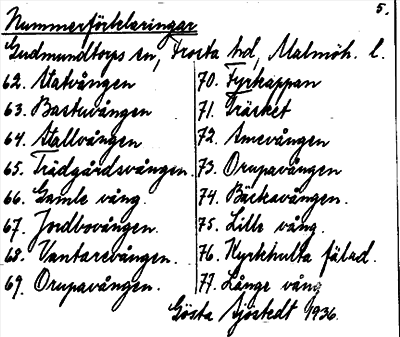 5.
Nummerförklaringar
Gudmundtorps sn, Frosta hd, Malmöh. l.
62. Statvången
63. Bastuvången
64. Stallvången
65. Trädgårdsvången.
66. Gamle vång.
67. Jordbovången.
68. Vantarevången.
69. Orupavången.
70. Fyrkappan
71. Träsket
72. Amevången
73. Orupavången
74. Bäckavången.
75. Lille vång.
76. Kyrkhulta fälad.
77. Långe vång
Gösta Sjöstedt 1936.